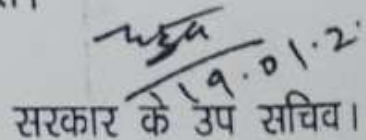 19.01.2
सरकार के उप सचिव।